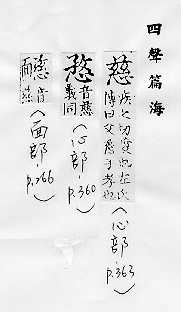 四聲篇海
慈
疾之切愛也左氏
傳曰父慈子孝也
(心部 p.363)
音慈
義同
(心部 p.360)
(面部 p.266)